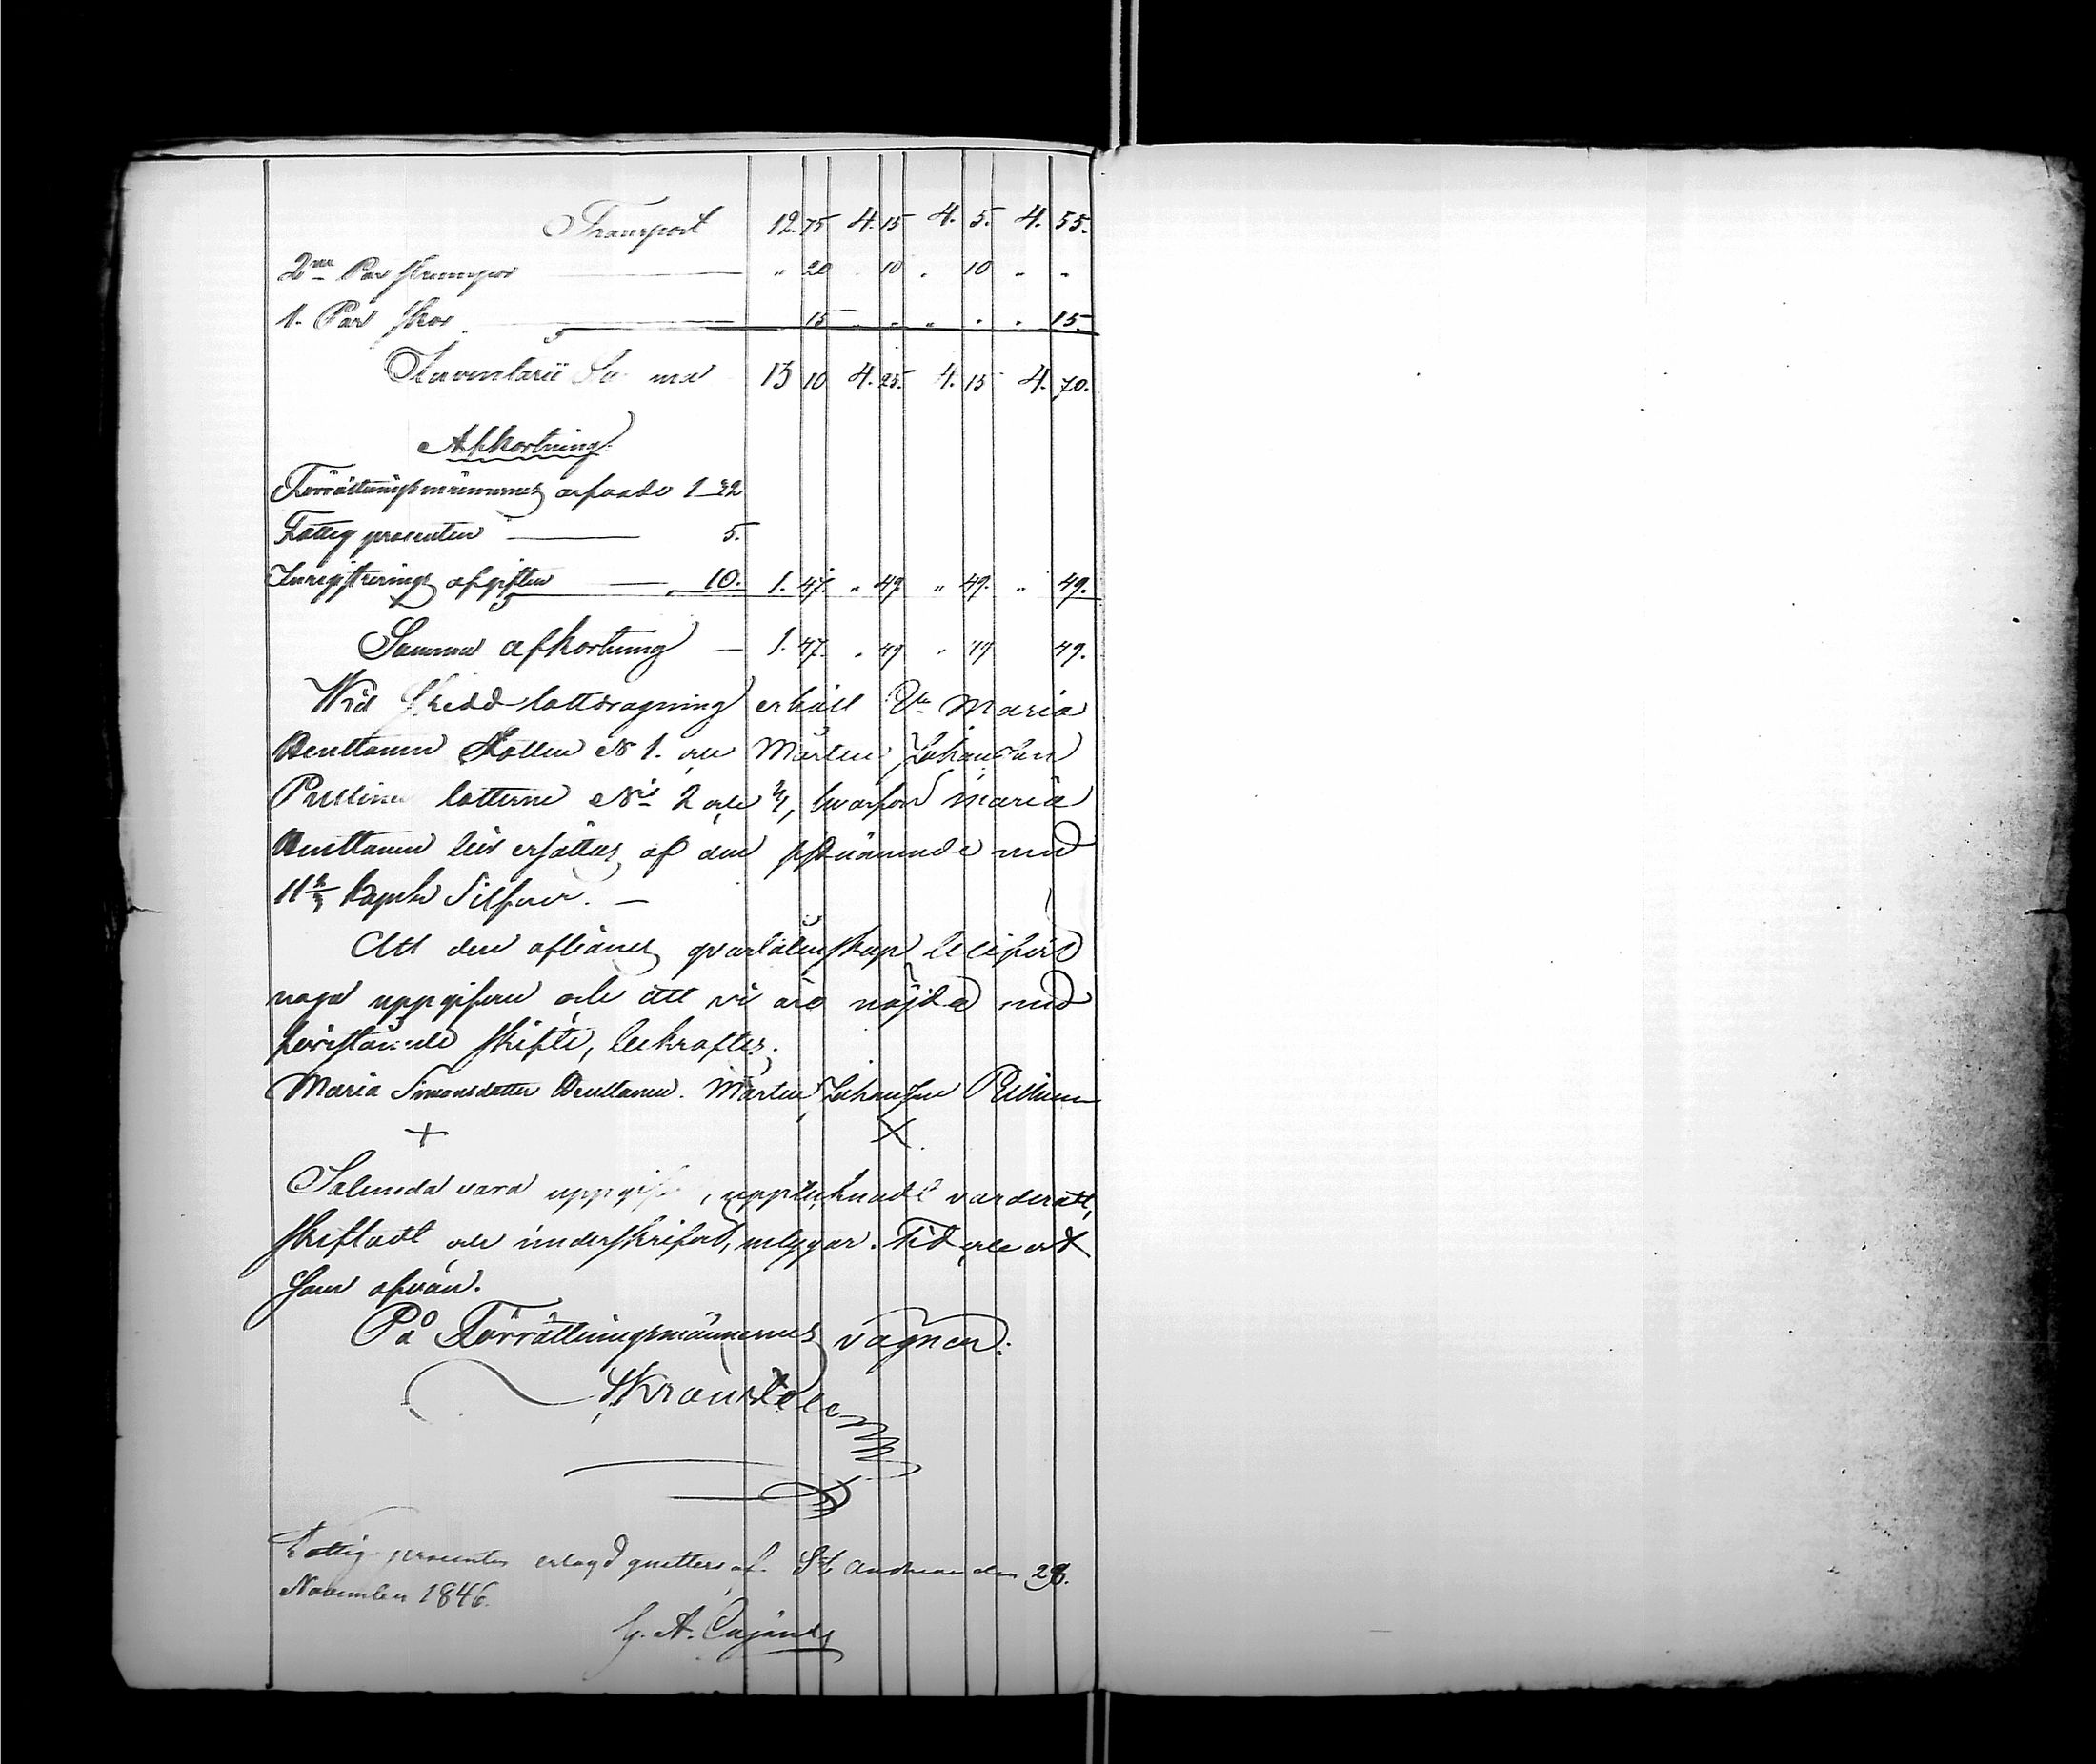 Transport 12. 75 4. 15 4. 5. 4. 55.
2ne Par strumpor — " 20 . 10 . 10 " "
1. Par skor — 15 " " " " " 15.
Inventarii Su ma 13 10 4. 25. 4. 15 4. 70.
Afkortning:
Förrättningsmännernes arfvode 1 32
Fattig procenten — 5.
Inregistrerings afgiften — 10. 1. 47. " 49 " 49. " 49.
Summa afkortning — 1. 47. " 49 " 49 49.
Wid skedd lottdragning erhöll Maria
Lotten N 1. och Mårten Johansson
lotterne N 2 och 3, hvarför Maria
bör ersättas af den sistnämnde med
11 kopek Silfver. —
Att den aflidnes qvarlåtenskap blifvit
noga uppgifven och att vi äro nöjda med
förestående skifte, bekräftes;
Maria Simonsdotter Mårten Johansson
+ X
Sålunda vara uppgif , upptecknadt värderadt,
skiftadt och underskrifvet, intygar. Tid och ort
som ofvan.
På Förrättningsmännernes vägnar:
Fattig procenten erlagd quitteras af. St Andreae den 28.
November 1846.
G. A. Cajander